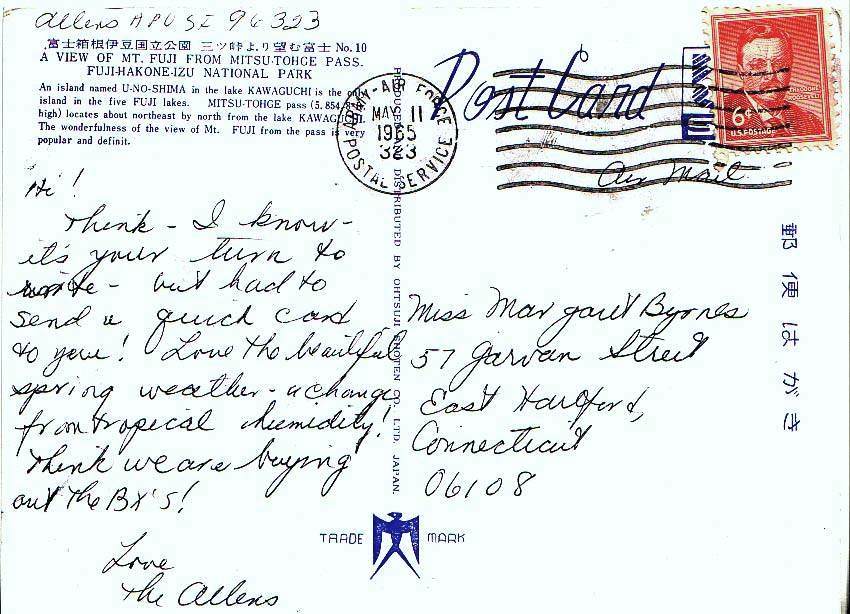 Allens APO SF 96323
富士箱根伊豆国立公園 三ツ峠より望む富士 No. 10
A VIEW OF MT. FUJI FROM MITSU-TOHGE PASS.
FUJI-HAKONE-IZU NATIONAL PARK
An island named U-NO-SHIMA in the lake KAWAGUCHI is the only
island in the five FUJI lakes. MITSU-TOHGE pass (5.854
high) locates about northeast by north from the lake KAWAGUCHI.
The wonderfulness of the view of Mt. FUJI from the pass is very
popular and definit.
Post Card
ARMY-AIR FORCE
MAY 11
1965
323
POSTAL SERVICE
THEODORE
ROOSEVELT
6¢
U.S. POSTAGE
Air Mail
Hi!
Think - I know -
it's your turn to
write - but had to
send a quick card
to you! Love the beautiful
spring weather - a change
from tropical humidity!
Think we are buying
out the BX's!
Love
The Allens
PRODUCED AND DISTRIBUTED BY OHTSUJI SHOTEN CO. LTD. JAPAN.
Miss Margaret Byrnes
57 Garvan Street
East Hartford,
Connecticut
06108
郵便はがき
TRADE MARK